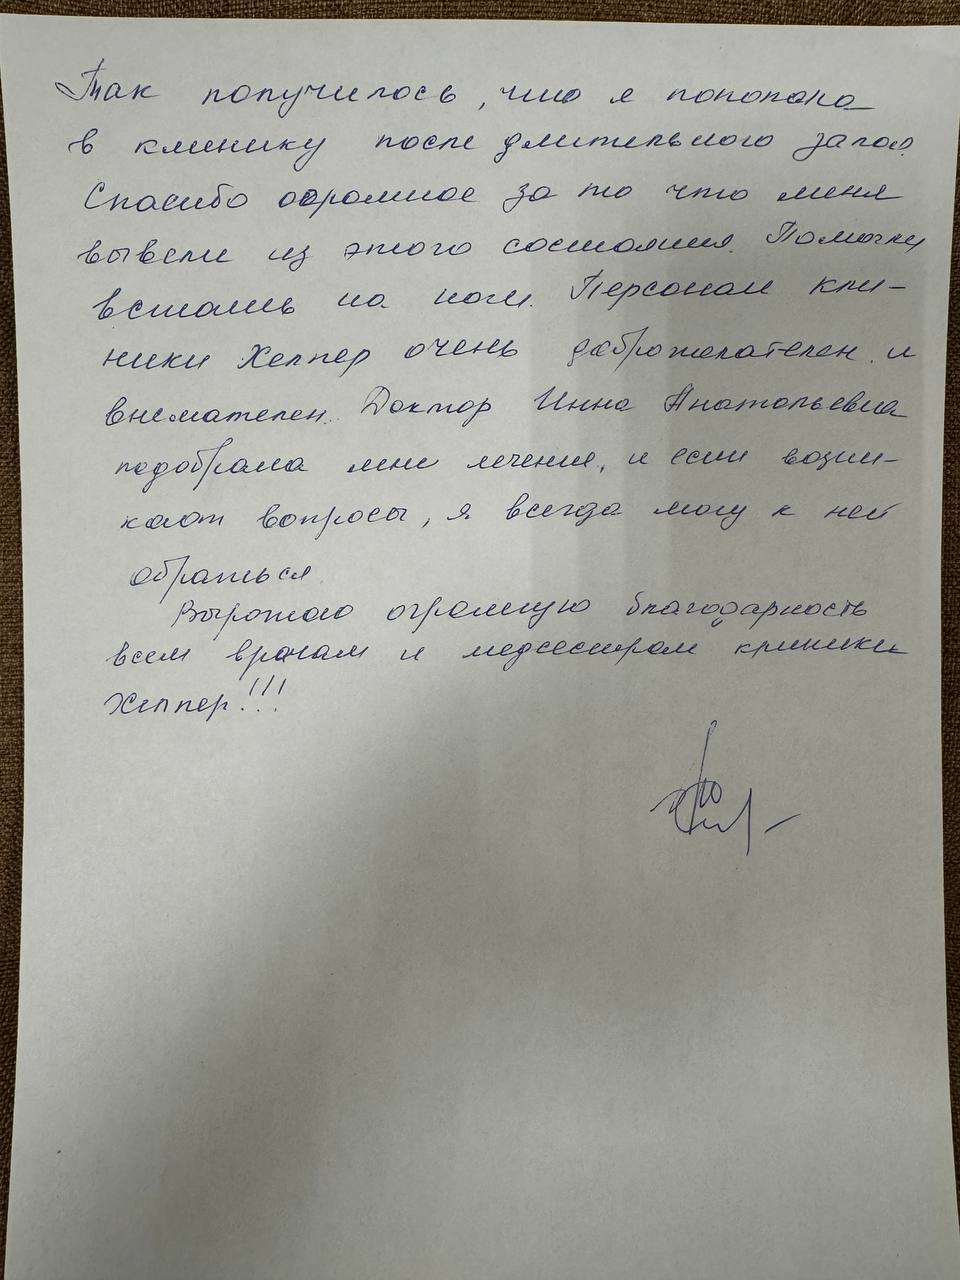 Так получилось, что я попала
в клинику после длительного запоя.
Спасибо огромное за то что меня
вывели из этого состояния. Помогли
встать на ноги. Персонал кли-
ники Хелпер очень доброжелателен и
внимателен. Доктор Инна Анатольевна
подобрала мне лечение, и если возни-
кают вопросы, я всегда могу к ней
обратиться.
Выражаю огромную благодарность
всем врачам и медсестрам клиники
Хелпер!!!